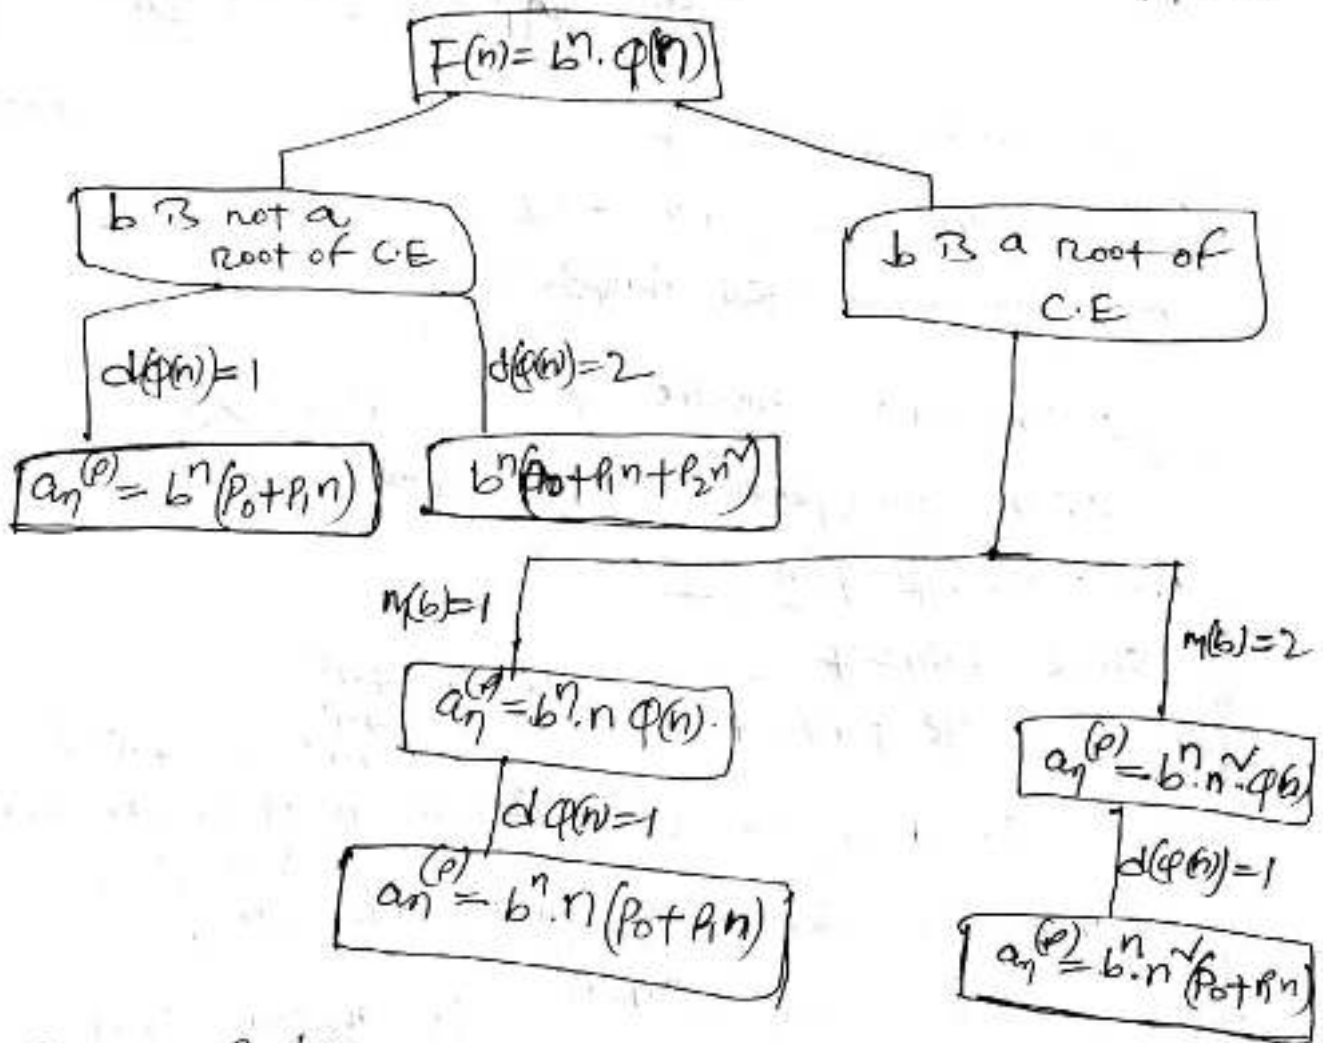 F(n) = bⁿ. φ(n)
b is not a
root of C.E
b is a root of
C.E
d(φ(n)) = 1
d(φ(n)) = 2
aₙ⁽ᵖ⁾ = bⁿ (P₀+P₁n)
bⁿ(P₀+P₁n+P₂n²)
m(b)=1
m(b)=2
aₙ⁽ᵖ⁾ = bⁿ. n φ(n).
aₙ⁽ᵖ⁾ = bⁿ. n². φ(n)
d φ(n) = 1
d(φ(n)) = 1
aₙ⁽ᵖ⁾ = bⁿ. n (P₀+P₁n)
aₙ⁽ᵖ⁾ = bⁿ. n² (P₀+P₁n)